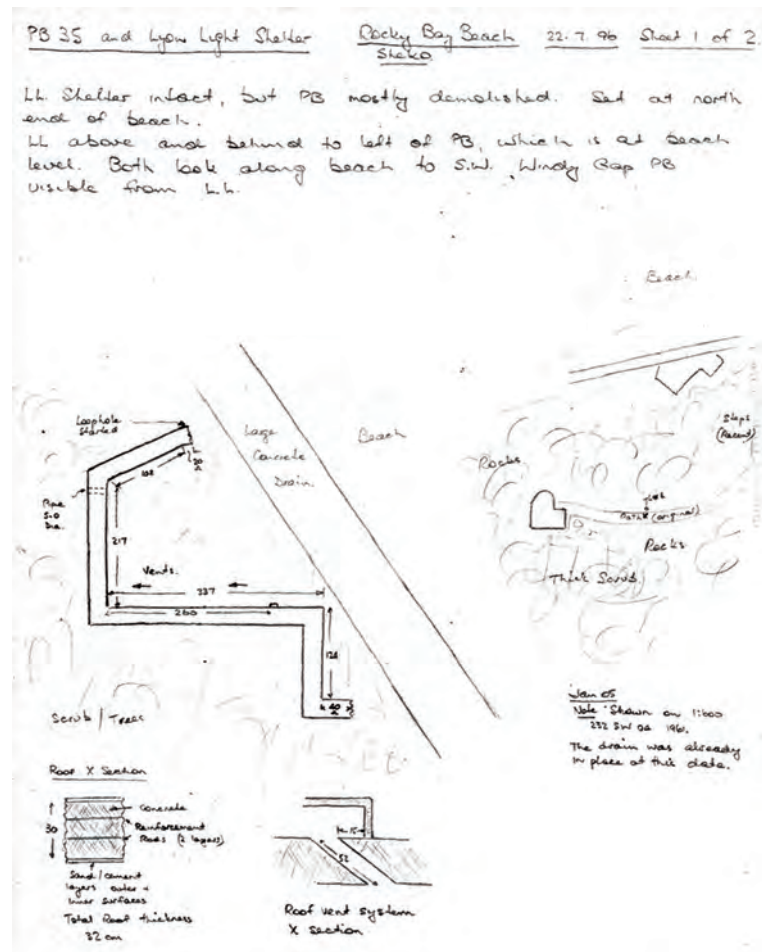 PB 35 and Lyon Light Shelter Rocky Bay Beach 22.7.96 Sheet 1 of 2
Sheko
LL Shelter intact, but PB mostly demolished. Set at north
end of beach.
LL above and behind to left of PB, which is at beach
level. Both look along beach to S.W. Windy Gap PB
visible from L.L.
Beach
Loophole
Started
Large
Concrete
Drain
Beach
Steps
(Recent)
Rocks
Path (original)
Rocks
Thick Scrub
Pipe
5.0
Dia.
108
30
217
Vents.
337
260
124
40
Scrub / Trees
Jan 05
Note Shown on 1:600
1961.
The drain was already
in place at this date.
Roof X Section
30
Concrete
Reinforcement
Rods (2 layers)
Sand/cement
layers outer +
inner surfaces
Total Roof thickness
32 cm
15
52
Roof vent system
X section